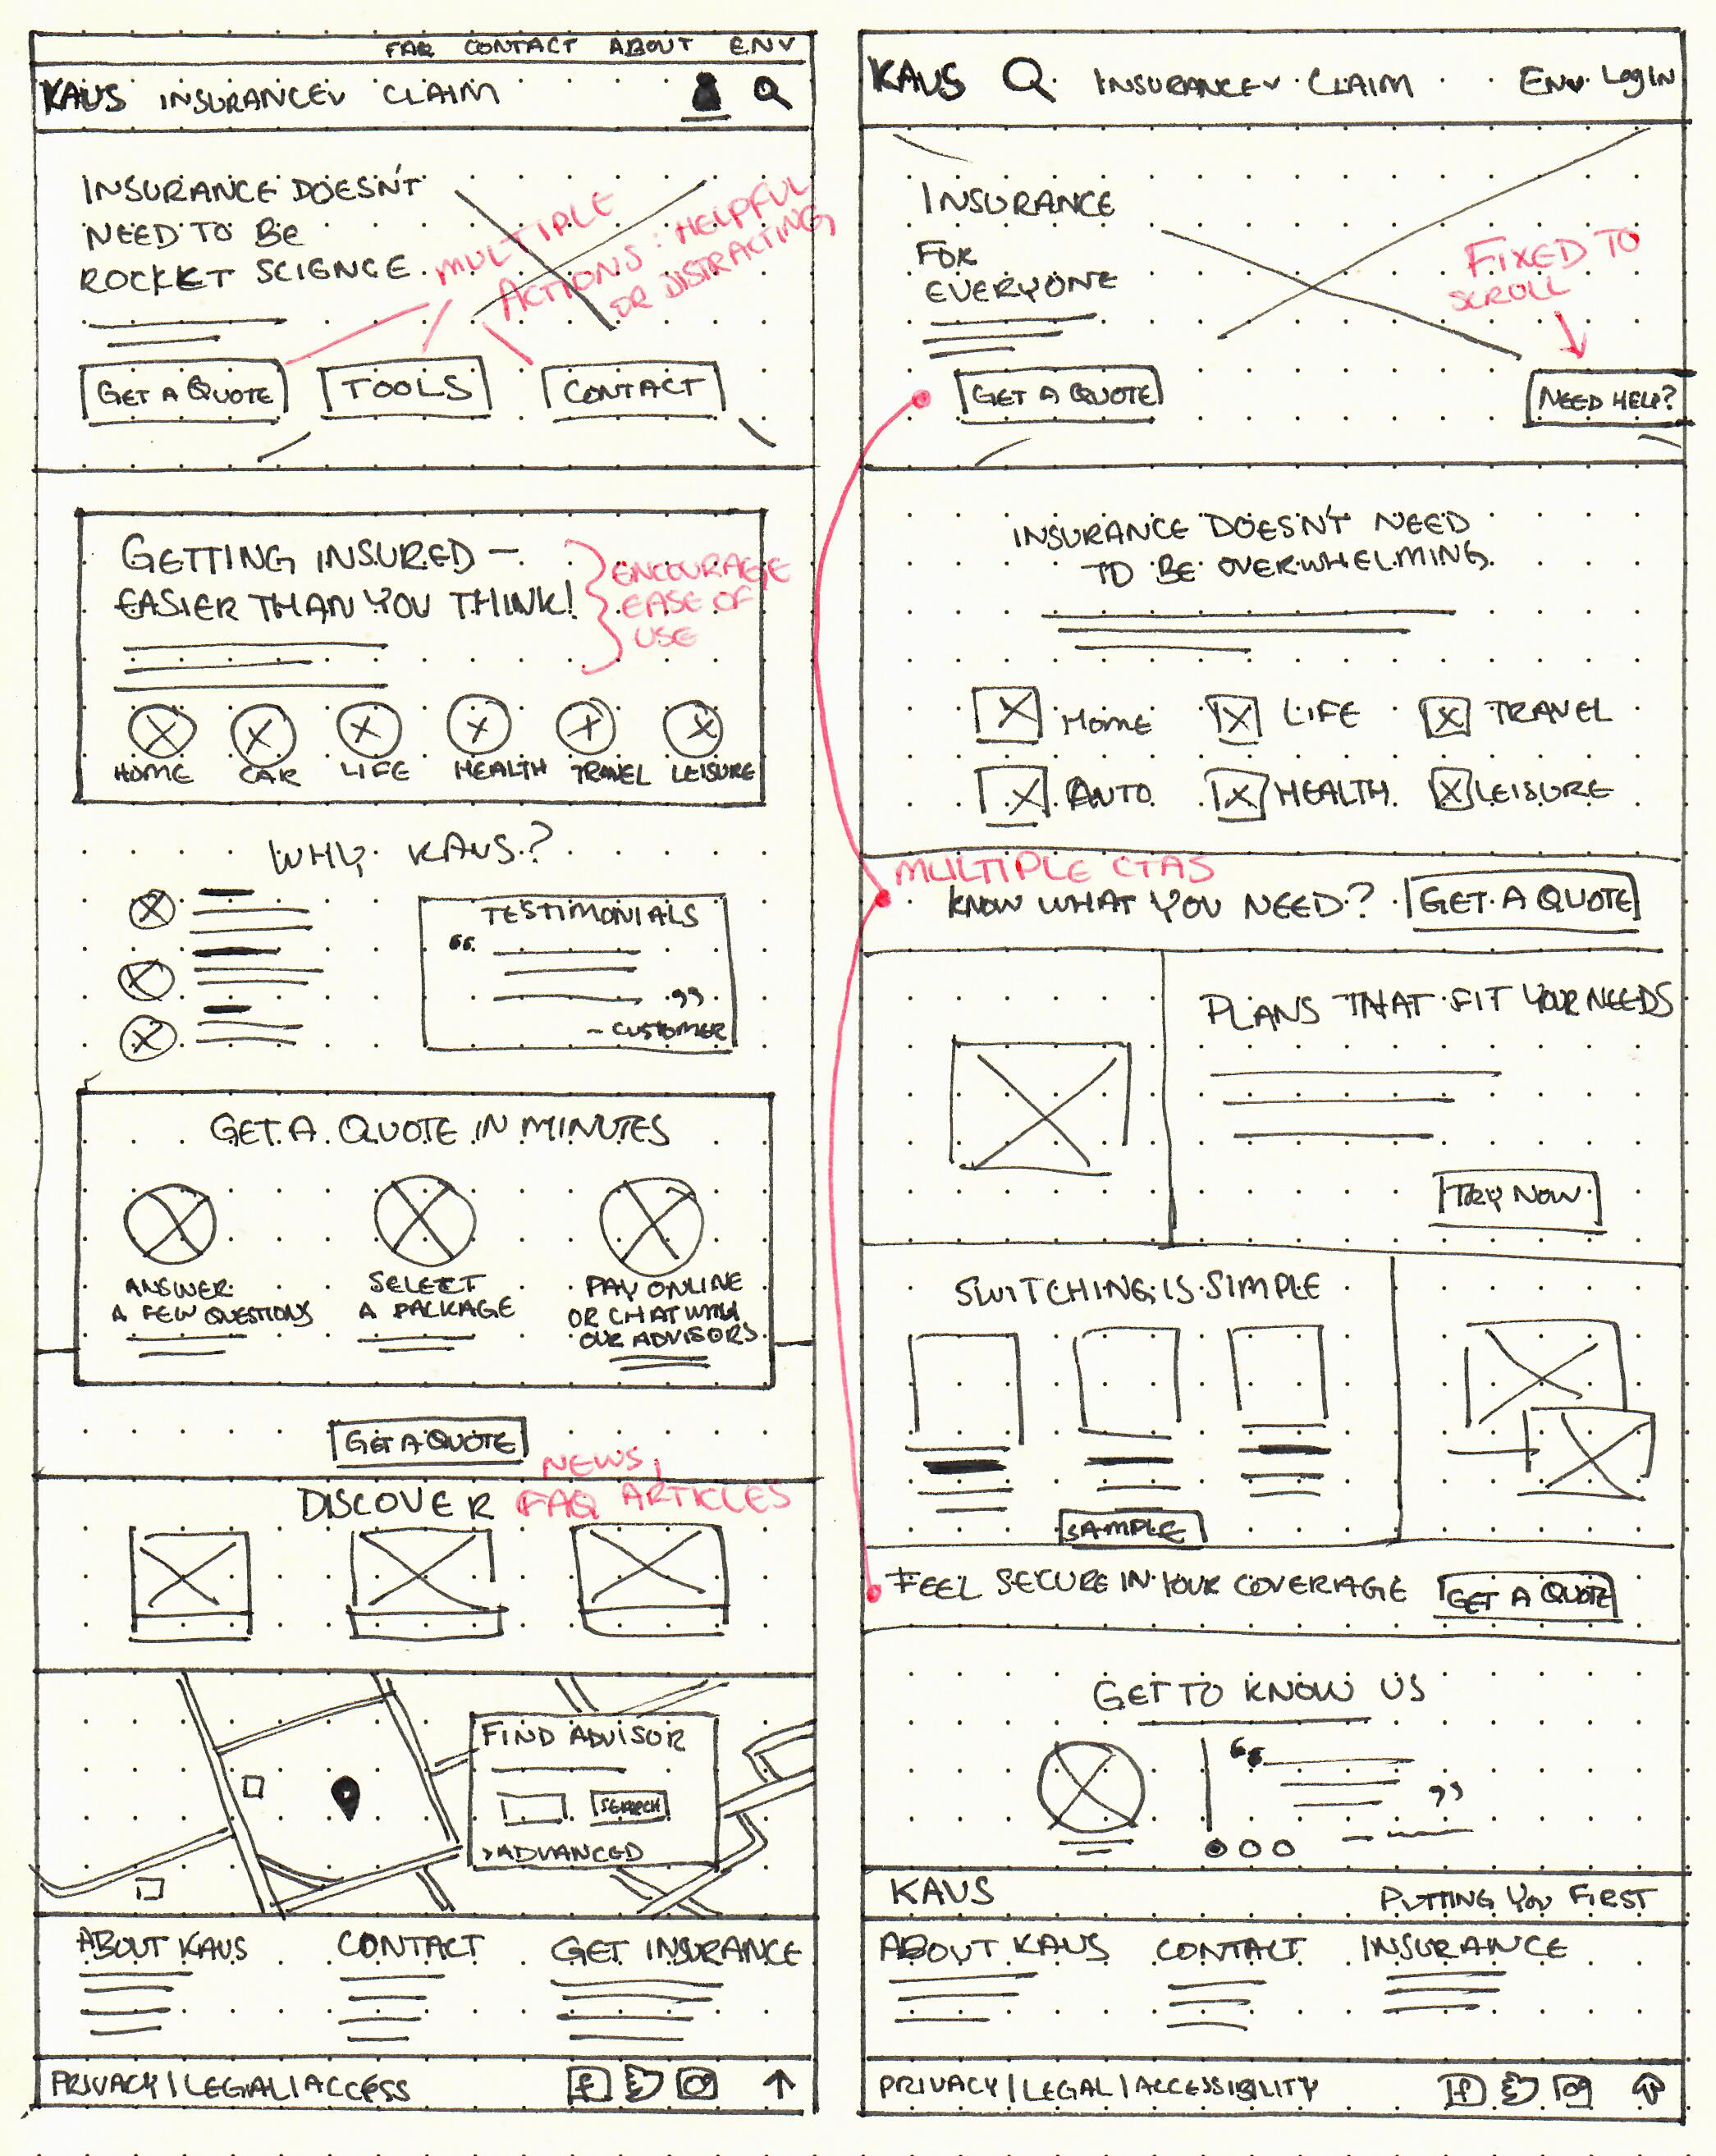 FAQ CONTACT ABOUT EN V
KAUS INSURANCE V CLAIM
INSURANCE DOESN'T
NEED TO BE
ROCKET SCIENCE
MULTIPLE
ACTIONS: HELPFUL
OR DISTRACTING
GET A QUOTE
TOOLS
CONTACT
GETTING INSURED —
EASIER THAN YOU THINK!
ENCOURAGE
EASE OF
USE
HOME CAR LIFE HEALTH TRAVEL LEISURE
WHY KAUS?
TESTIMONIALS
“
”
- CUSTOMER
GET A QUOTE IN MINUTES
ANSWER
A FEW QUESTIONS
SELECT
A PACKAGE
PAY ONLINE
OR CHAT WITH
OUR ADVISORS
GET A QUOTE
DISCOVER
NEWS,
FAQ ARTICLES
FIND ADVISOR
SEARCH
>ADVANCED
ABOUT KAUS CONTACT GET INSURANCE
PRIVACY | LEGAL | ACCESS
f
KAUS INSURANCE V CLAIM EN V LOGIN
INSURANCE
FOR
EVERYONE
FIXED TO
SCROLL
GET A QUOTE
NEED HELP?
INSURANCE DOESN'T NEED
TO BE OVERWHELMING
HOME LIFE TRAVEL
AUTO HEALTH LEISURE
MULTIPLE CTAS
KNOW WHAT YOU NEED? GET A QUOTE
PLANS THAT FIT YOUR NEEDS
TRY NOW
SWITCHING IS SIMPLE
SAMPLE
FEEL SECURE IN YOUR COVERAGE GET A QUOTE
GET TO KNOW US
“
”
KAUS PUTTING YOU FIRST
ABOUT KAUS CONTACT INSURANCE
PRIVACY | LEGAL | ACCESSIBILITY
f